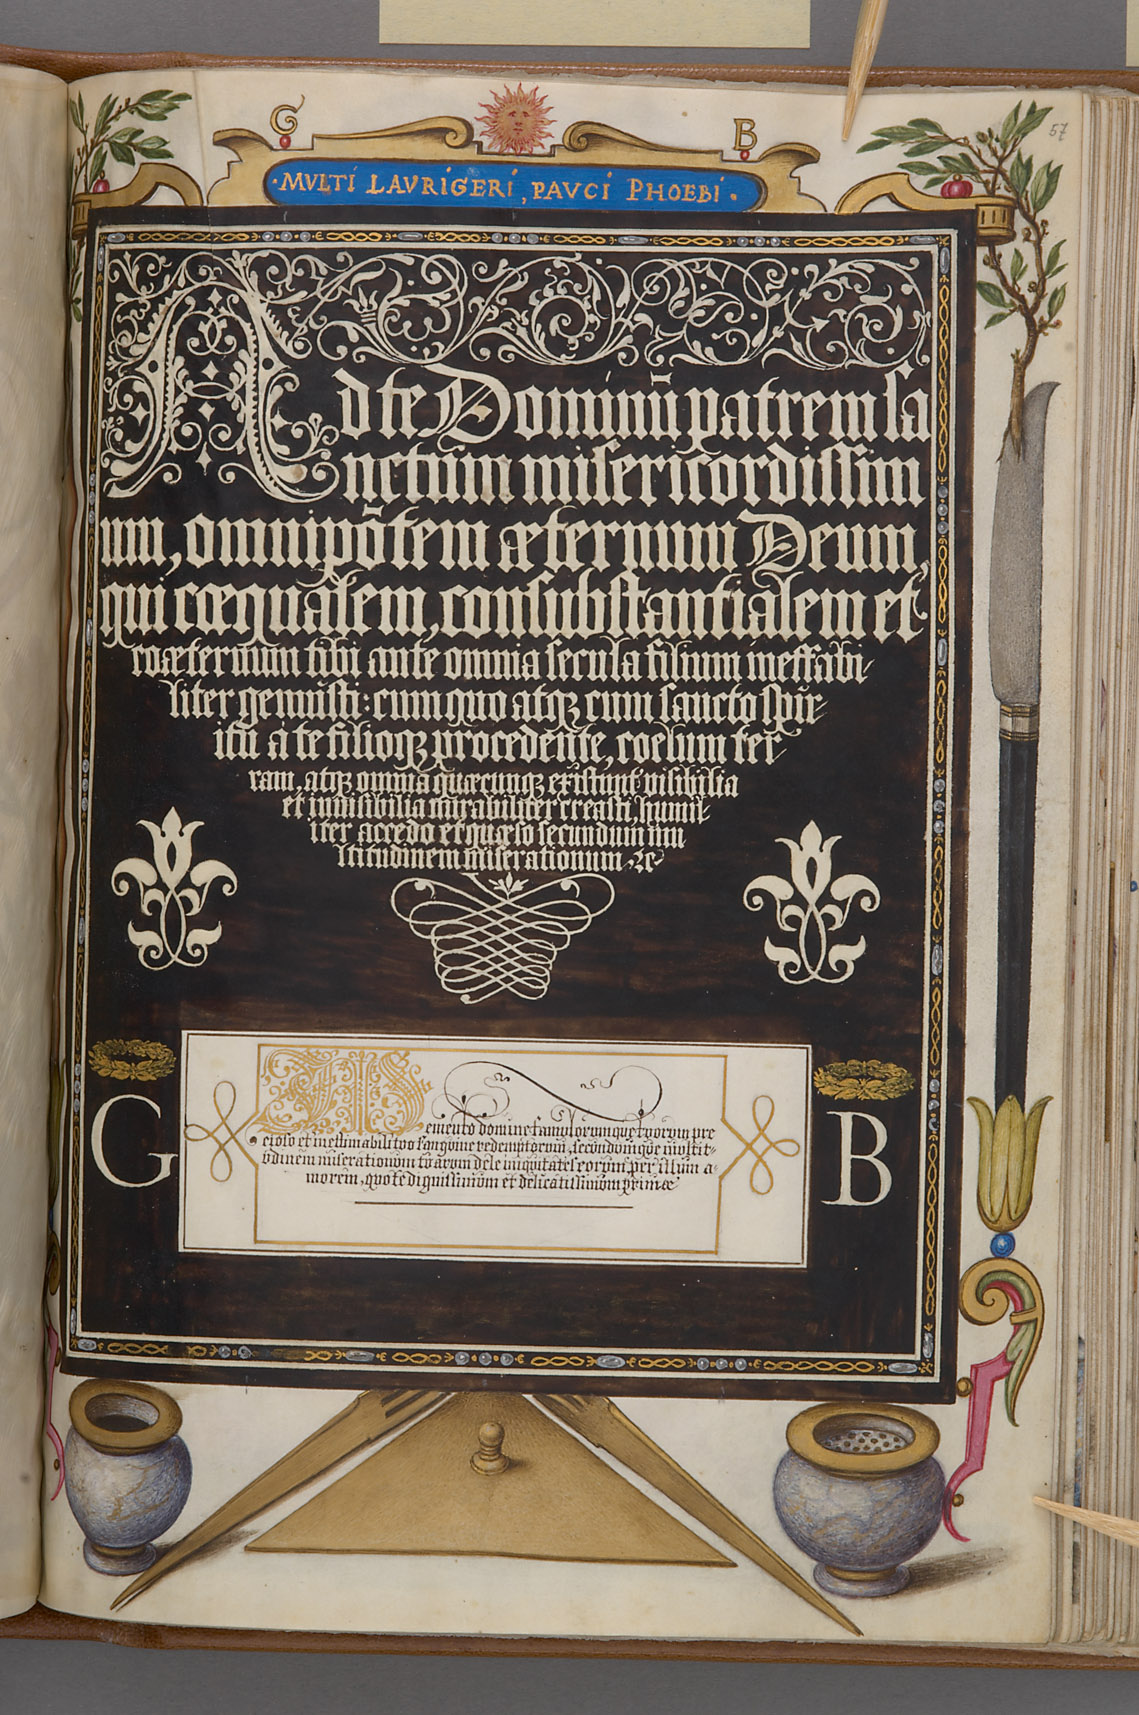 57
G B
·MVLTI LAVRIGERI, PAVCI PHOEBI·
Ad te Dominũ patrem sa
nctum misericordissim
um, omnipõtem æternum Deum,
qui cœqualem, consubstantialem et
coæternum tibi ante omnia secula filium ineffabi-
liter genuisti: cum quo atqꝫ cum sancto spir-
itu a te filioqꝫ procedente, coelum ter
ram, atqꝫ omnia quæcunqꝫ existunt visibilia
et invisibilia mirabiliter creasti, humil
iter accedo et quæso secundum um
ltitudinem miserationum ꝛc
G B
Memento domine famulorumque tuorum pre
cioso et inestimabili tuo sanguine redemptorum, secundum que multit-
udinem miserationum tuarum dele iniquitates eorum per illum a-
morem, quo te dignissimum et delicatissimum primæ